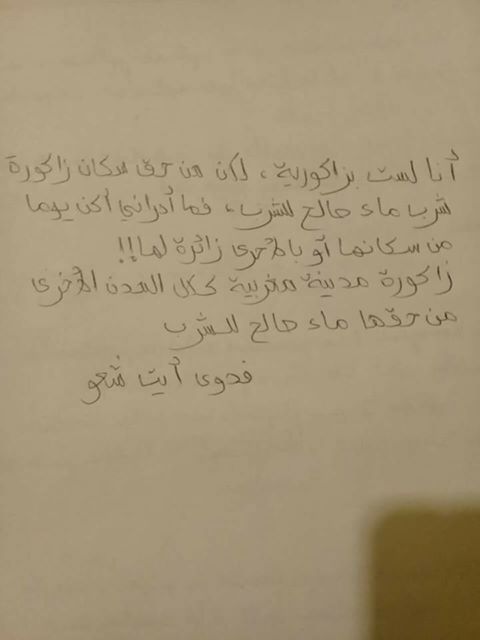 أنا لست بزاكورية، لكن من حق سكان زاكورة
شرب ماء صالح للشرب، فما أدراني أكن يوما
من سكانها أو بالأحرى زائرة لها!!
زاكورة مدينة مغربية ككل المدن الأخرى
من حقها ماء صالح للشرب
فدوى أيت شعو